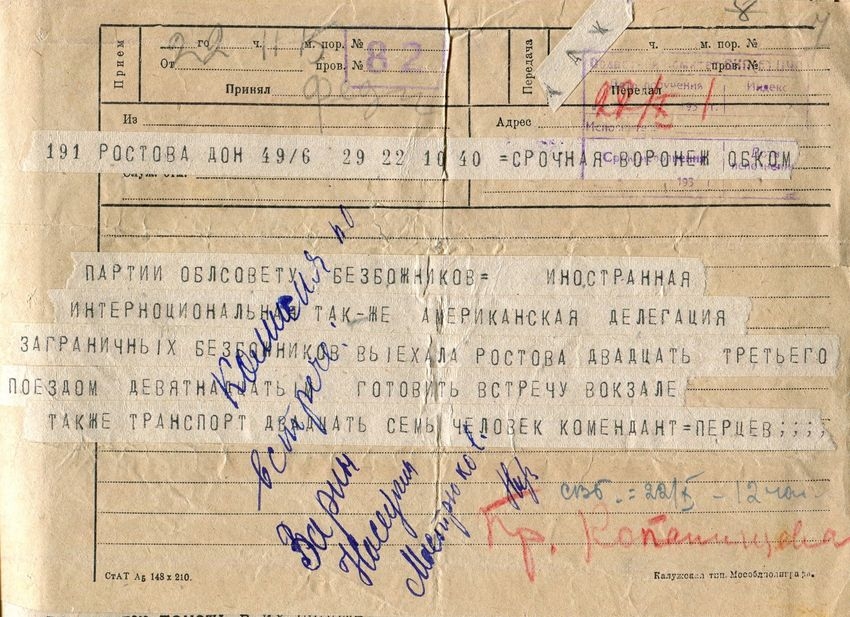 8
Прием
22 го ч. 11-15 м. пор. №
От пров. №
82
Принял
Передача
ТАК
ч. м. пор. №
пров. №
Индекс
Передал
22/X
193
Из
Адрес
191 РОСТОВА ДОН 49/6 29 22 10 40 =СРОЧНАЯ ВОРОНЕЖ ОБКОМ
Служ. отм.
193
ПАРТИИ ОБЛСОВЕТУ БЕЗБОЖНИКОВ= ИНОСТРАННАЯ
ИНТЕРНОЦИОНАЛЬНАЯ ТАК-ЖЕ АМЕРИКАНСКАЯ ДЕЛЕГАЦИЯ
ЗАГРАНИЧНЫХ БЕЗБОЖНИКОВ ВЫЕХАЛА РОСТОВА ДВАДЦАТЬ ТРЕТЬЕГО
ПОЕЗДОМ ДЕВЯТНАДЦАТЬ ГОТОВИТЬ ВСТРЕЧУ ВОКЗАЛЕ
ТАКЖЕ ТРАНСПОРТ ДВАДЦАТЬ СЕМЬ ЧЕЛОВЕК КОМЕНДАНТ=ПЕРЦЕВ;;;;
Комиссия по
встрече:
Варин
22/X - 12 час
Пр. Копанищева
СтАТ А5 148 х 210.
Калужская тип. Мособлполиграфа.